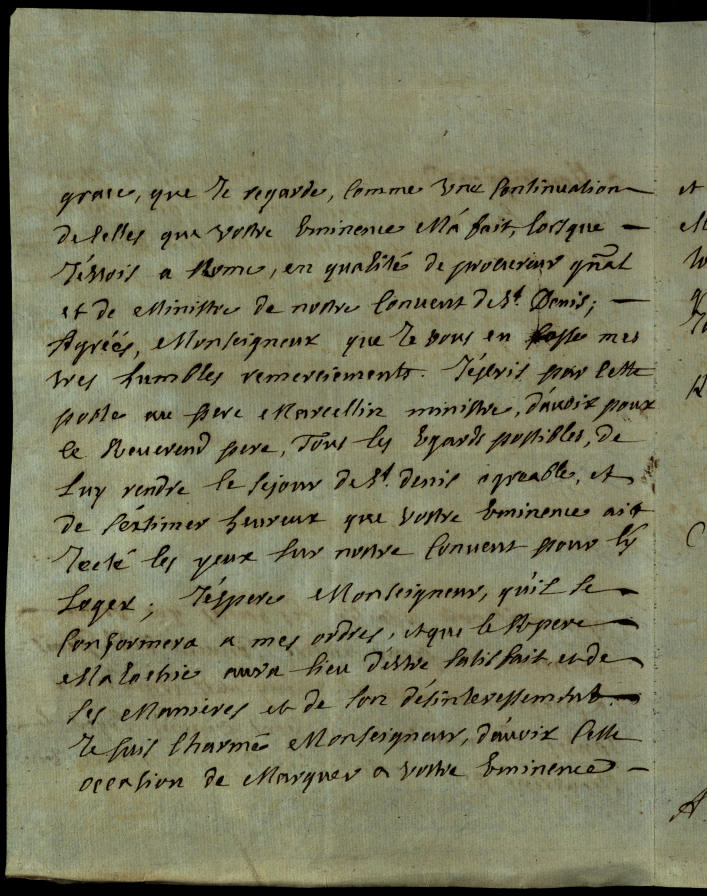 grace, que Je regarde, Comme Une Continuation
de Celles que Vostre Eminence M'a fait, lorsque
J'éstois a Rome, en qualité de procureur gñal
et de Ministre de nostre Convent de St. Denis;
Agréés, Monseigneur que Je vous en fasse mes
tres humbles remerciements. J'éscris par Cette
poste au pere Marcellin ministre, d'avoir pour
le Reverend pere, Tous les Egards possibles, de
Luy rendre le séjour de St. denis agreable, et
de S'éstimer heureux que Vostre Eminence ait
Jecté les yeux sur nostre Convent pour l'y
Loger; J'éspere Monseigneur, qu'il se
Conformera a mes ordres, et que le R. pere
Malachie aura lieu d'éstre satisfait, et de
ses Manieres et de son désinteressement.
Je suis Charmé Monseigneur, d'avoir Cette
occasion de Marquer a Vostre Eminence
et
A